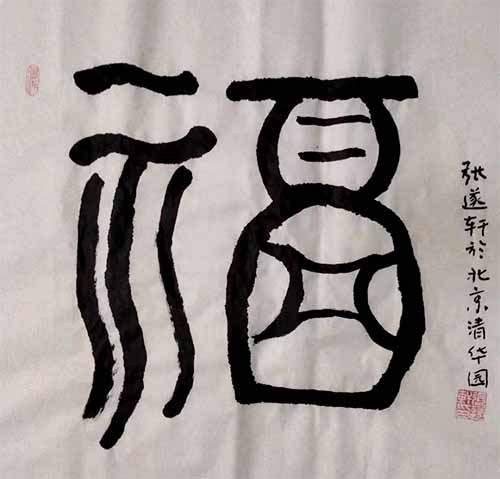 福
张遂轩於北京清华园